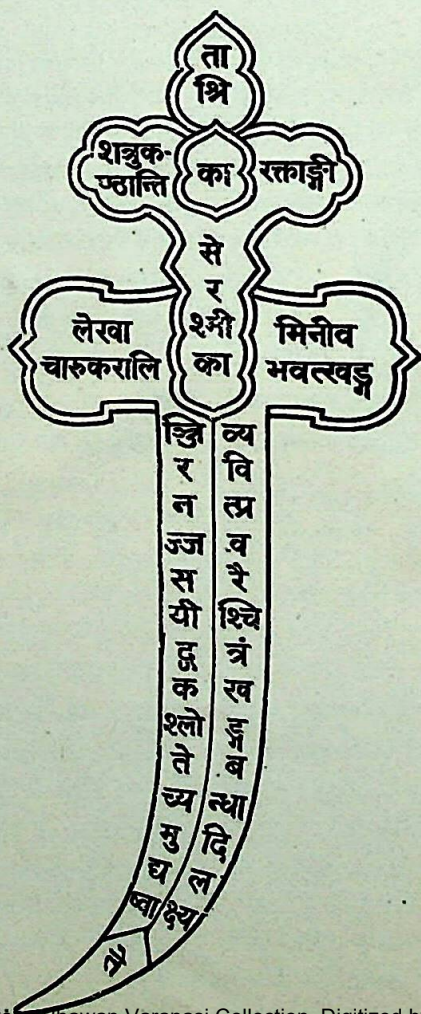 ता
श्रि
शत्रुक-
ण्ठान्ति
का
रक्ताङ्गी
से
र
श्मी
का
लेखा
चारुकरालि
मिनीव
भवत्खड्ग
ञ्जि
र
न
ज्ज
स
यी
द्ग
क
श्लो
ते
च्य
मु
द्य
ष्वा
व्य
वि
त्प्र
व
रै
श्चि
त्रं
ख
ड्ग
ब
न्धा
दि
ल
क्ष्य
Bhawan Varanasi Collection. Digitized b